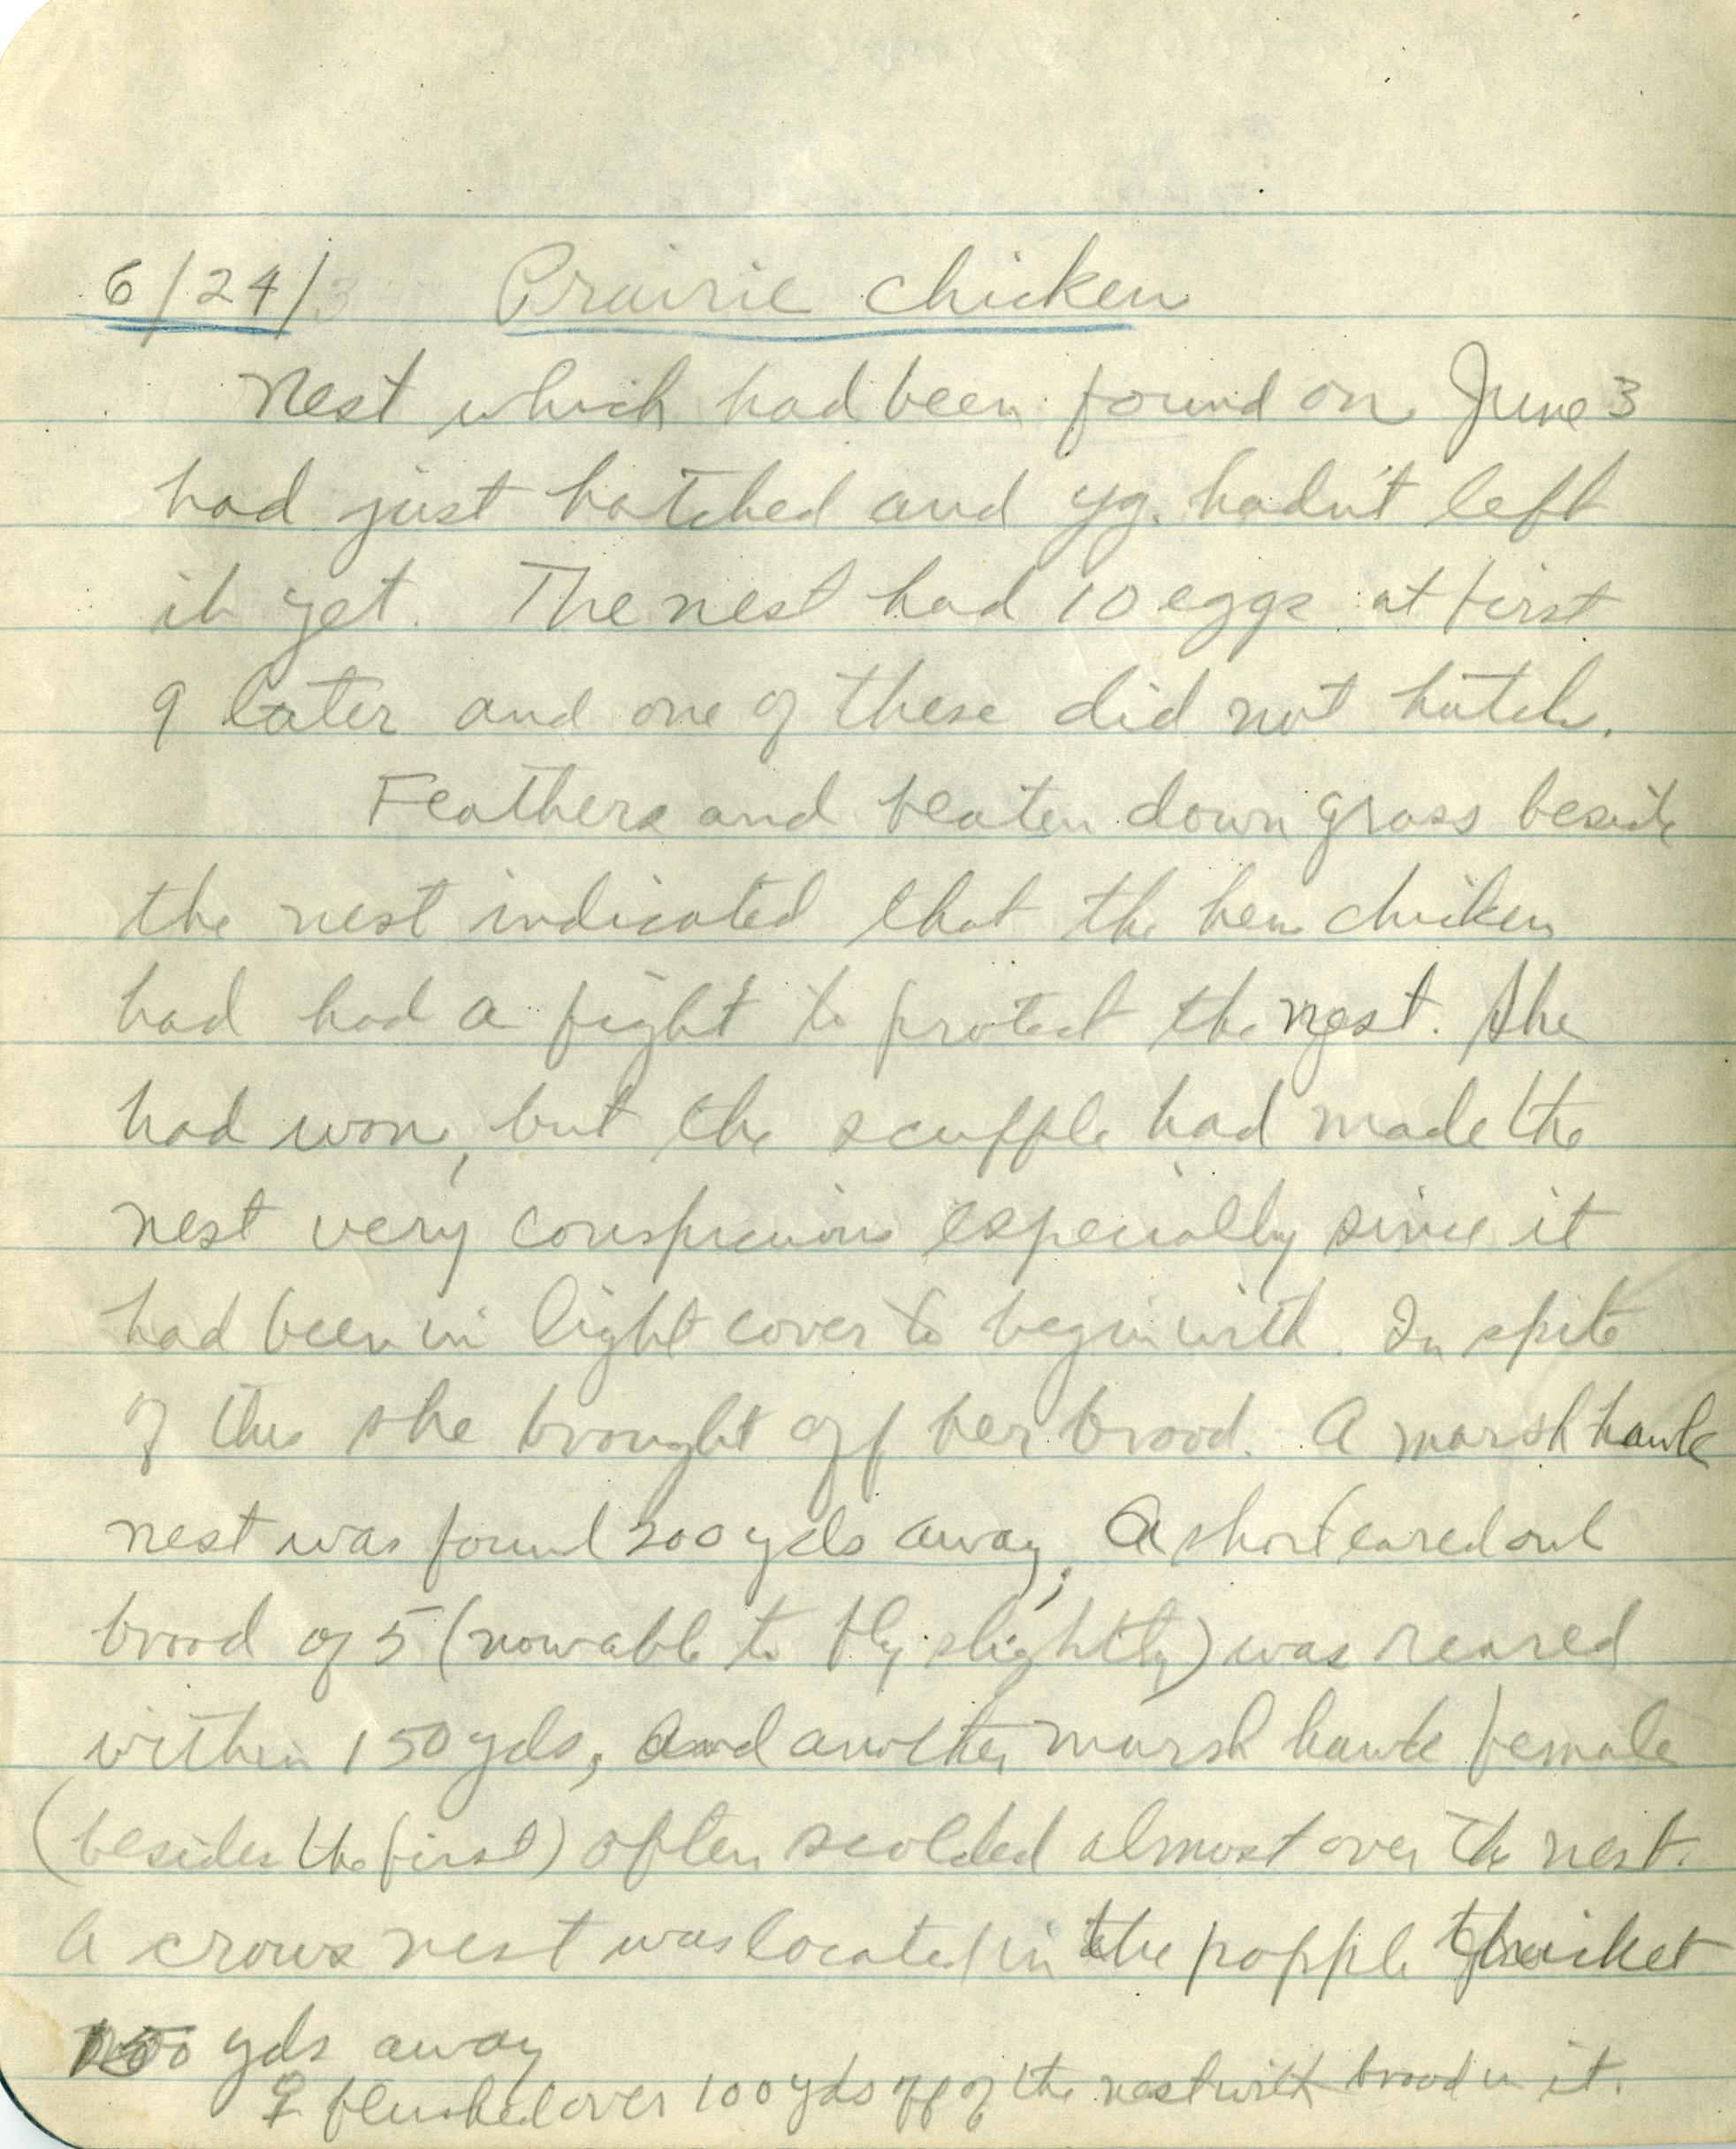 6/24/3 Prairie Chicken
Nest which had been found on June 3
had just hatched and yg. hadn't left
it yet. The nest had 10 eggs at first
9 later and one of these did not hatch.
Feathers and beaten down grass beside
the nest indicated that the hen chicken
had had a fight to protect the nest. She
had won, but the scuffle had made the
nest very conspicuous especially since it
had been in light cover to begin with. In spite
of this she brought off her brood. A marsh hawk
nest was found 200 yds away; A short eared owl
brood of 5 (now able to fly slightly) was reared
within 150 yds; and another marsh hawk female
(besides the first) often scolded almost over the nest.
A crows nest was located in the popple thicket
150 yds away
♀ flushed over 100 yds off of the nest with brood in it.